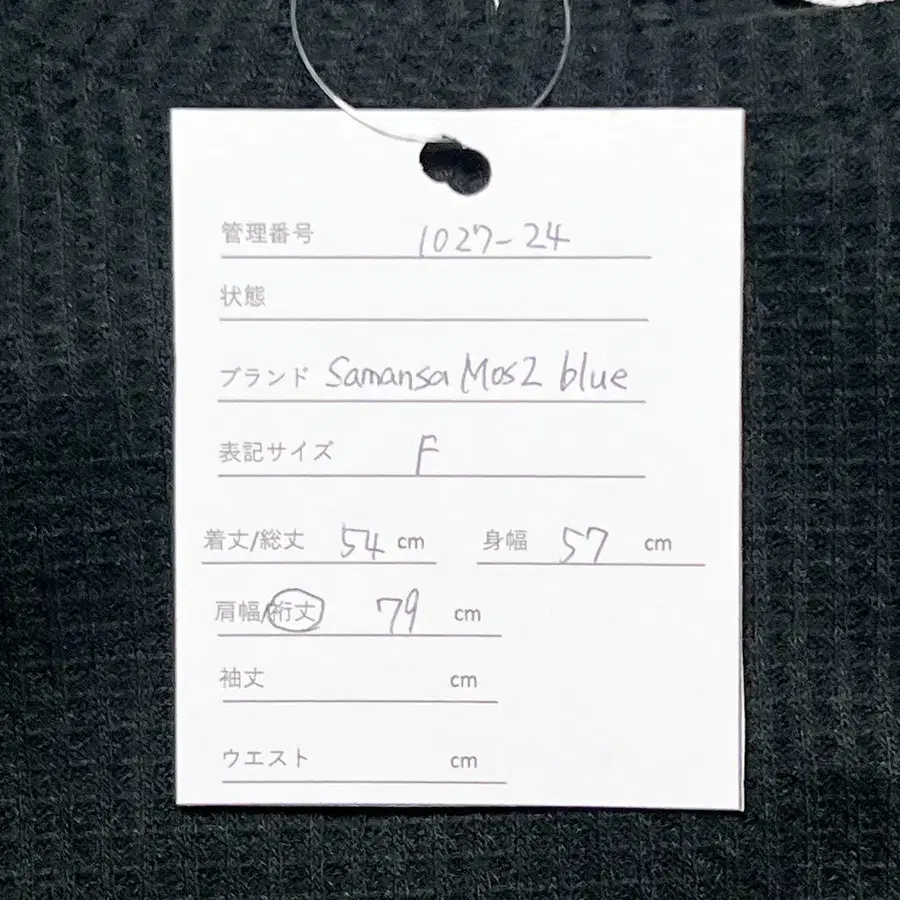 管理番号 1027-24
状態
ブランド Samansa Mos2 blue
表記サイズ F
着丈/総丈 54 cm 身幅 57 cm
肩幅/裄丈 79 cm
袖丈 cm
ウエスト cm